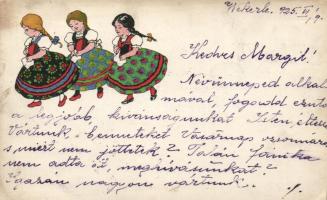 Wekerle. 925. VI/9.
Kedves Margit!
Nevünneped alkal
mával, fogadd
a legjobb kivánságunkat Isten éltessen
Vártunk Benneteket Vasárnap uzsonnára
s miért nem jöttetek? Talán Jánika
nem adta át, meghivásunkat?
Igazán nagyon vártunk.